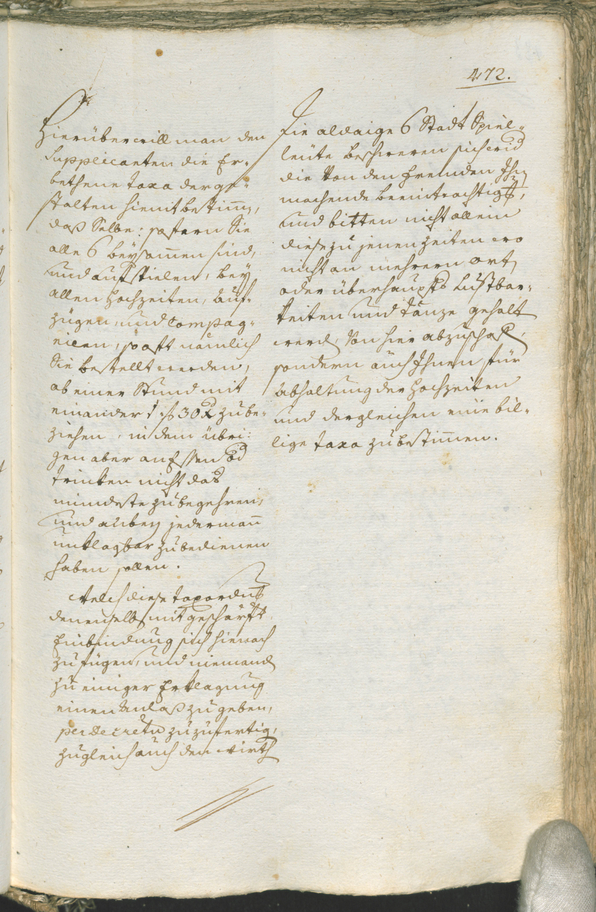 472.
Hierüber will man den
Supplicanten die Er-
bethene taxa derge-
stalten hiemit bestimen,
daß Selbe: sofern Sie
alle 6 beysammen sind,
und aufspielen, bey
allen Hochzeiten, auf-
zügen, und Compag-
nien, so oft nämlich
Sie bestellt werden,
ab einer Stund mit
einander 1 f 30 x zu be-
ziehen, in dem übri-
gen aber an Essen und
trinken nicht das
mindeste zu begehren,
und anbey jedermann
unklagbar zu bedienen
haben sollen.
Welch diese taxordnung
denenselben mit geschärfter
Einbindung sich hienach
zu fügen, und niemand
zu einiger Erklagung
einen Anlaß zu geben,
per decretum zuzufertigen,
zugleich auch den Wirth
Die aldaige 6 Stadt Spiel-
leute beschweren sich
die von den fremden
machende beeinträchtigung,
und bitten nicht allein
diese zu jenen zeiten wo
nicht an mehrern orten
oder überhaupts Lustbar-
keiten und tänze gehalten
werden, von hier abzuschaffen,
sondern auch Ihnen für
abhaltung der Hochzeiten
und dergleichen eine bil-
lige taxa zu bestimmen.